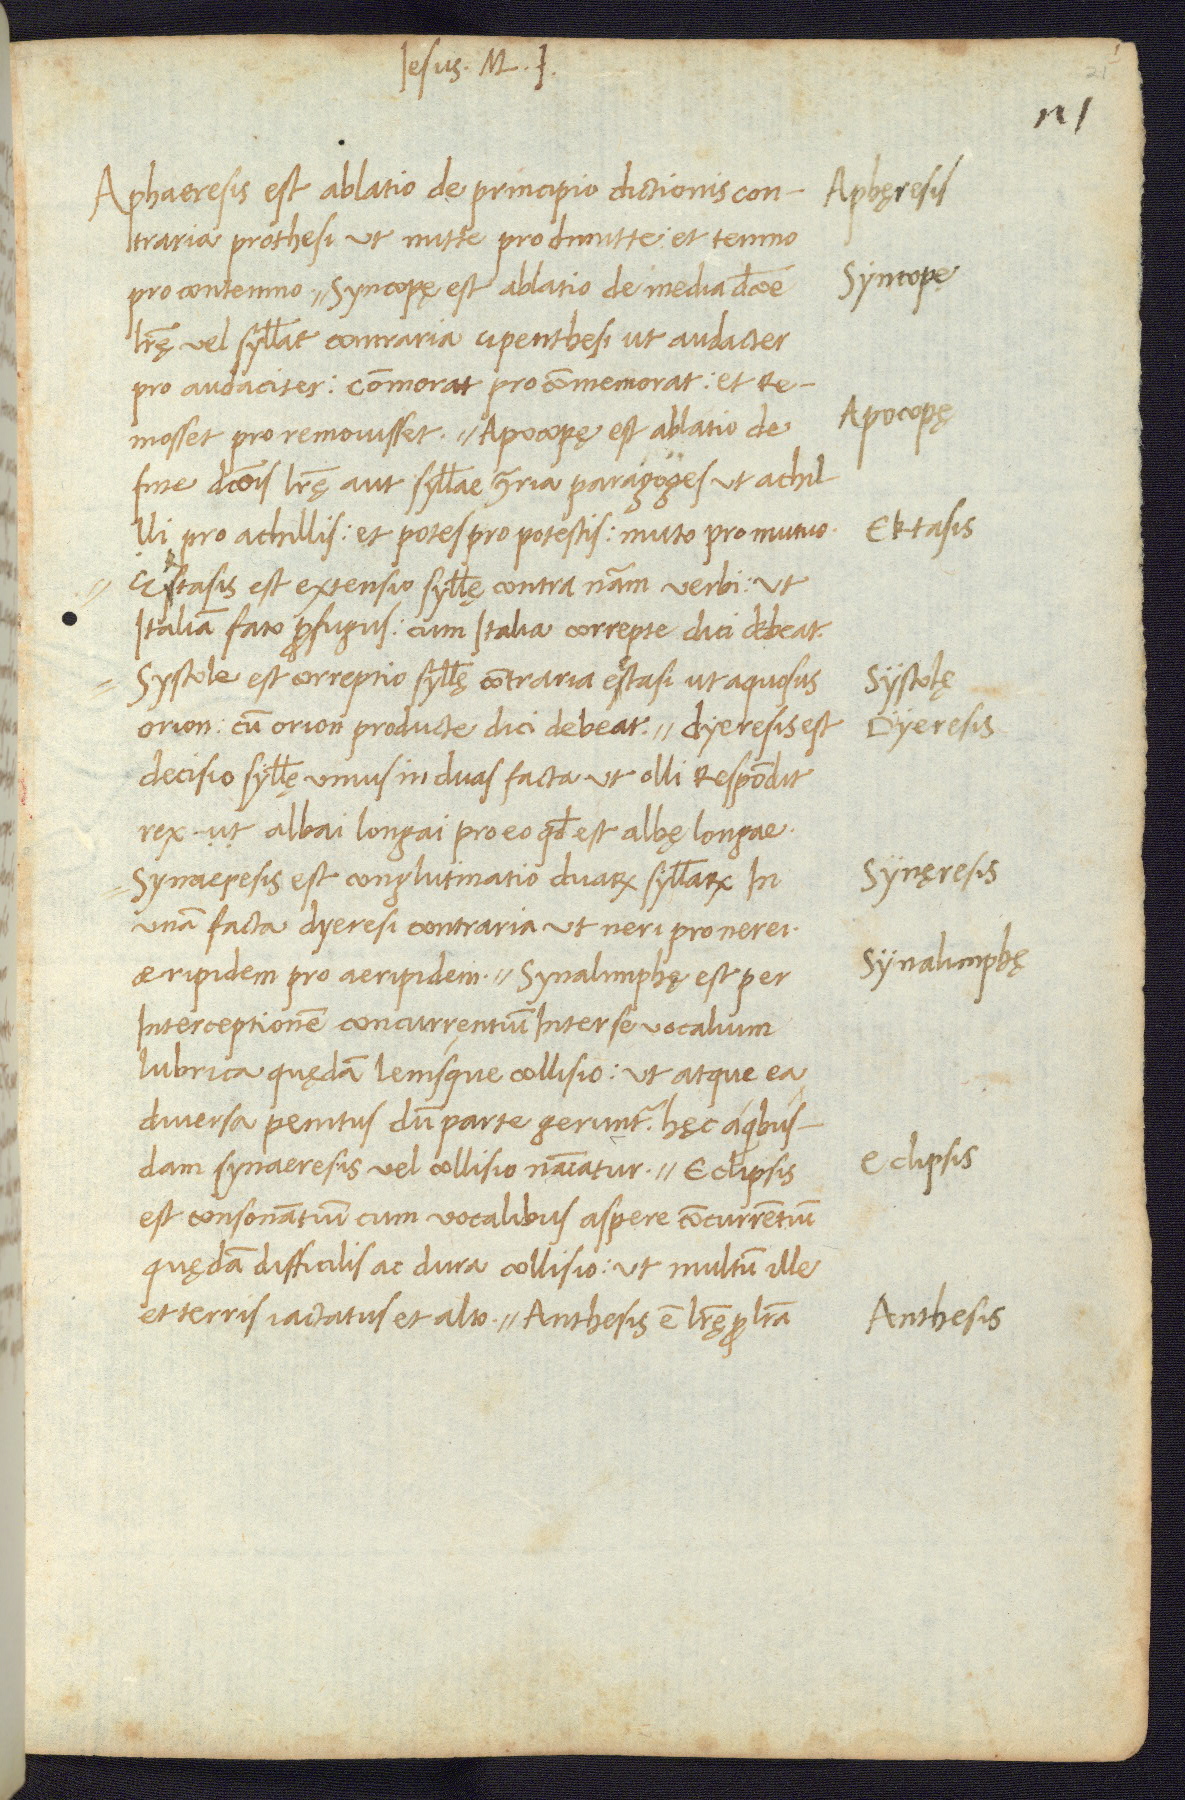 Iesus. M. I.
21
Aphaeresis est ablatio de principio dictionis con-
traria prothesi ut mitte pro dimitte: et temno
pro contemno // Syncopę est ablatio de media dc̄oe
lr̄ę vel syll̄at contraria epenthesi ut audacter
pro audaciter: cōmorat pro cōmemorat: et Re-
mosset pro remouisset. // Apocopę est ablatio de
fine dc̄ois lr̄ę aut syll̄ae ɔ̄ria paragoges ut achil
lli pro achillis: et potes pro potestis: muto pro mutuo.
// Ektasis est extensio syll̄ę contra nāม verbi: ut
Italiā fato ꝓfugus: cum Italia correpte dici debeat.
// Systole est correptio syll̄ę cōtraria ectasi ut aquosus
orion: cū orion producte dici debeat. // dyeresis est
decisio syll̄ę unius in duas facta ut olli Respōdit
rex. ut albai longai pro eo qd̄ est albę longae.
// Synaeresis est conglutinatio duaꝝ syll̄aꝝ In
unā facta dyeresi contraria ut neri pro nerei.
æripidem pro aeripidem. // Synalimphę est per
Interceptionē concurrentiū Inter se vocalium
lubrica quędā lenisque collisio: ut atque ea
diversa penitus dū parte gerunt᷑. hęc a qbus-
dam synaeresis vel collisio nūcatur. // Eclipsis
est consonātiū cum vocalibus aspere cōcurrētiū
quędā difficilis ac dura collisio: ut multū ille
et terris iactatus et alto. // Anthesis ē lr̄ę ꝓ lr̄a
Aphęresis
Syncopę
Apocopę
Ektasis
Sÿstolę
Dÿeresis
Sÿnęresis
Sÿnalimphę
eclipsis
Anthesis